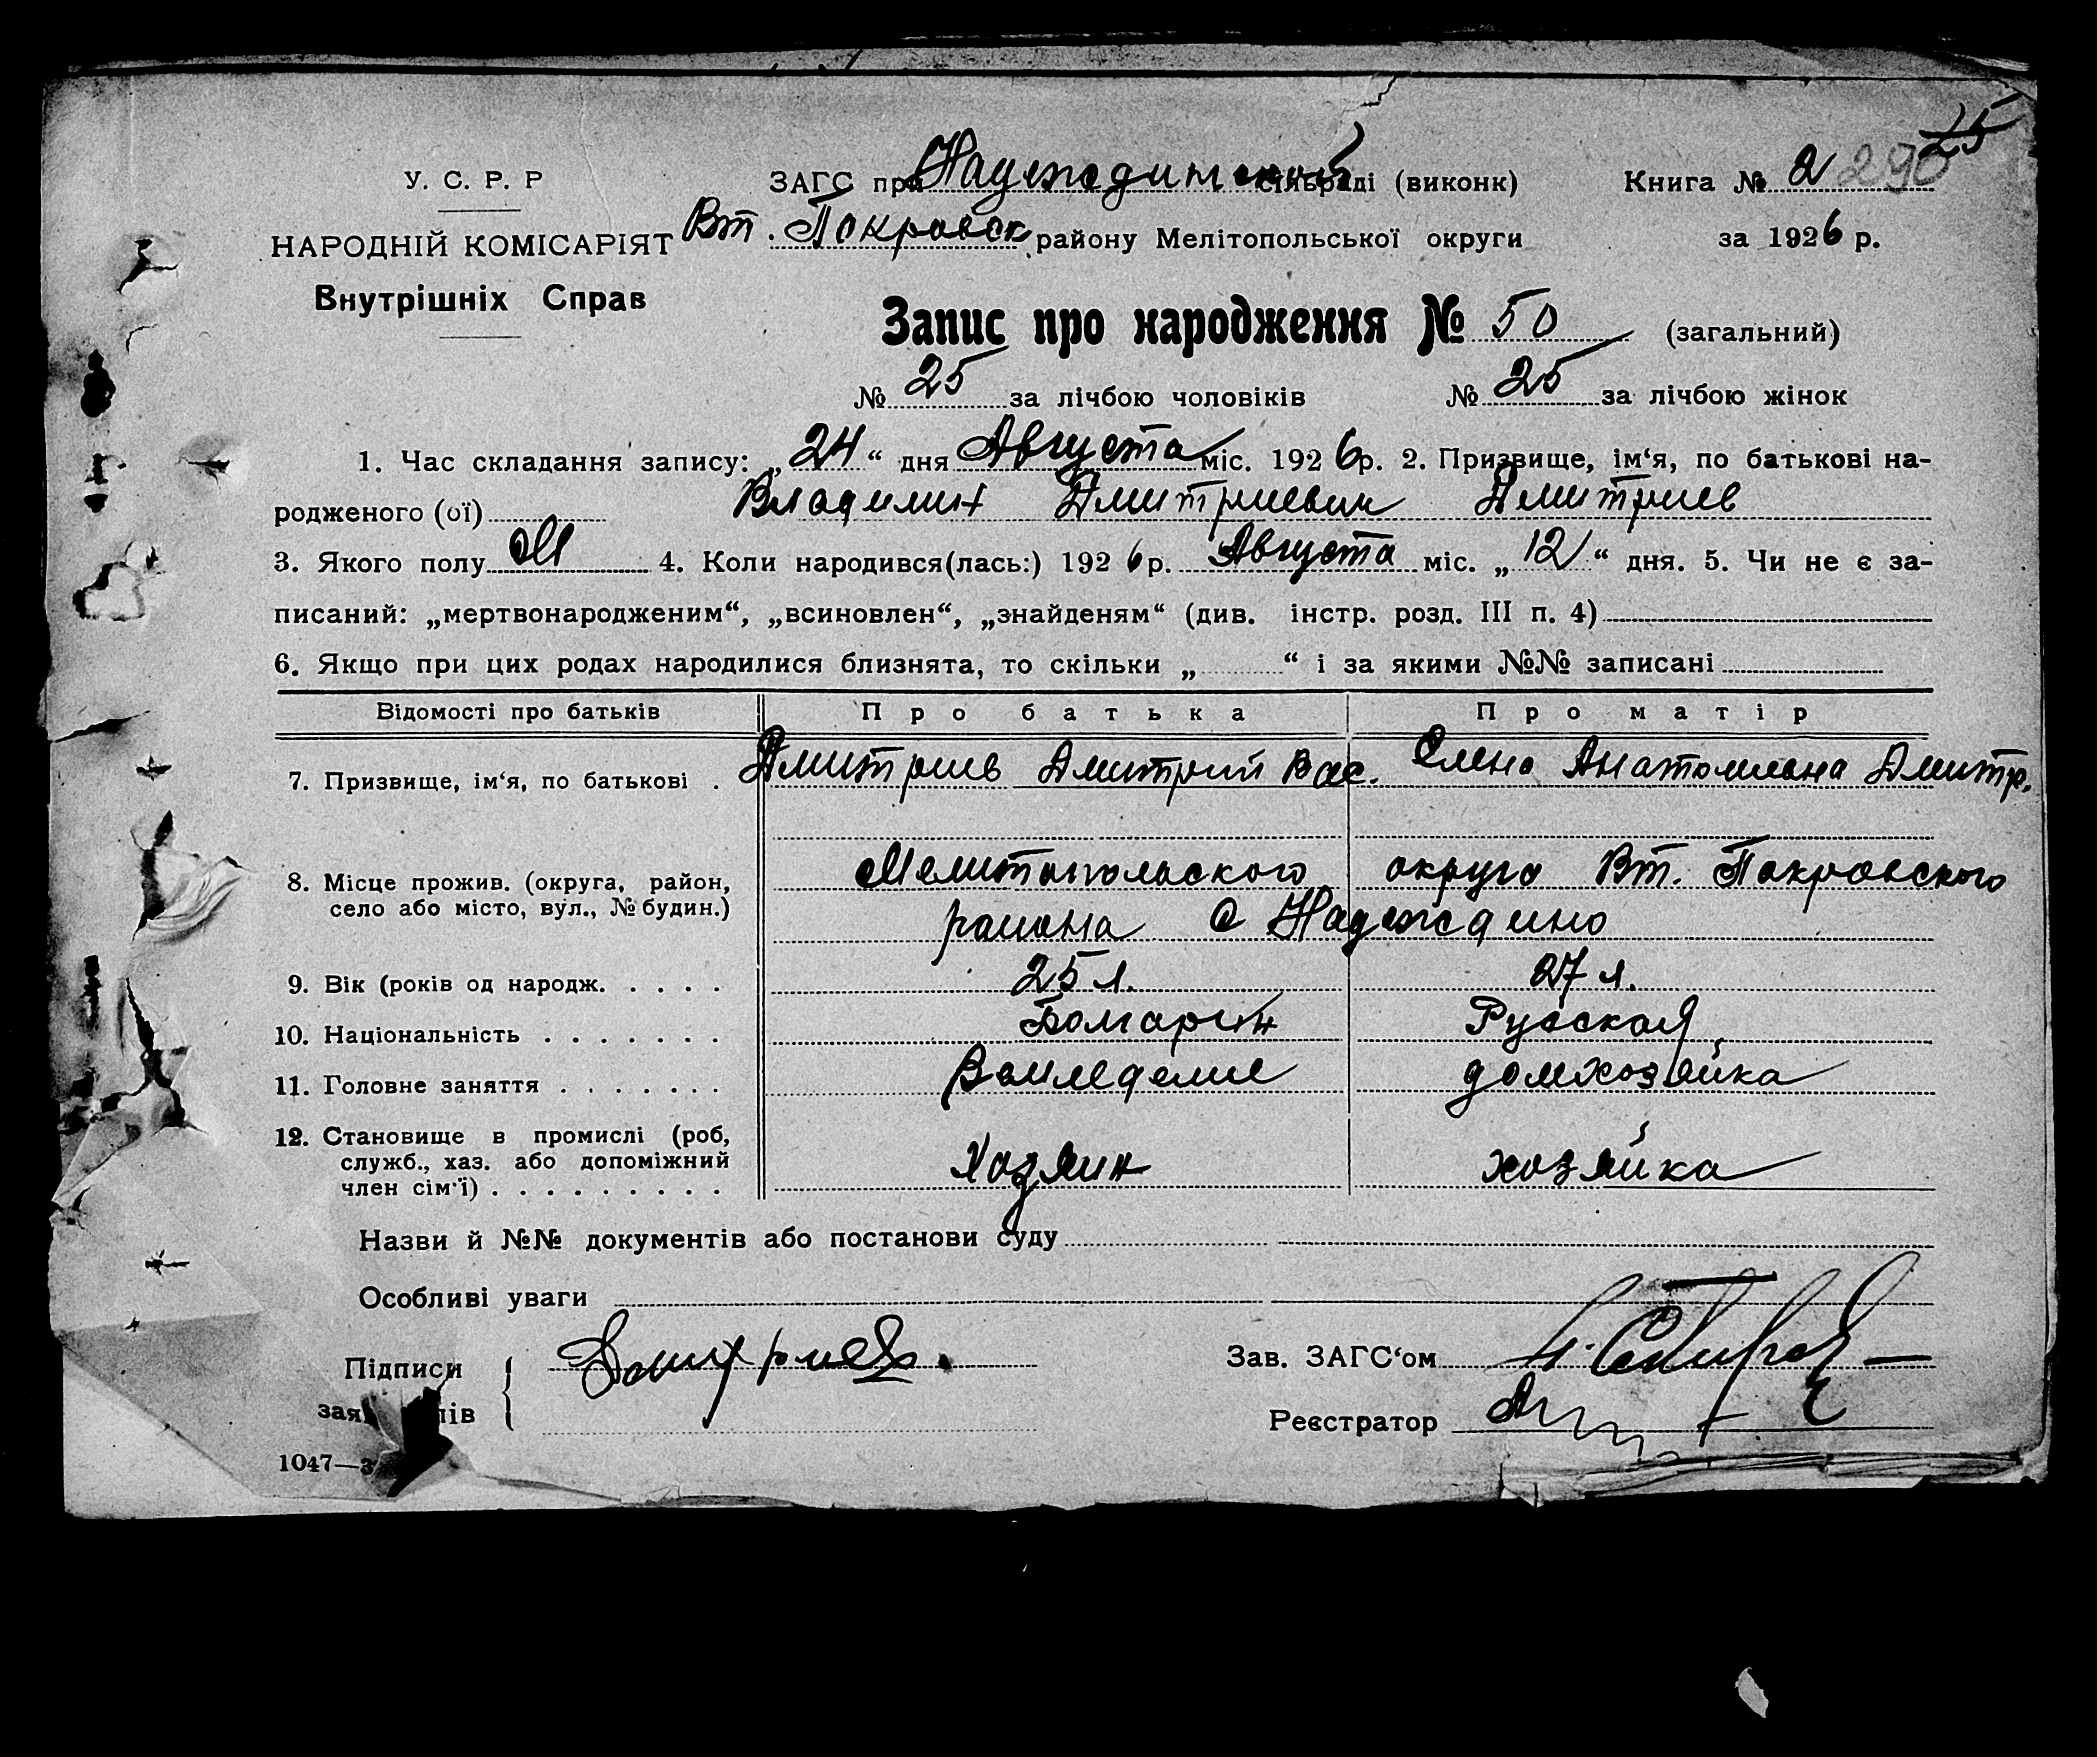 25
У. С. Р. Р ЗАГС при Надеждинской сільраді (виконк) Книга № 2 290
НАРОДНІЙ КОМІСАРІЯТ Вт. Покровск району Мелітопольської округи за 1926 р.
Внутрішніх Справ
Запис про народження № 50 (загальний)
№ 25 за лічбою чоловіків № 25 за лічбою жінок
1. Час складання запису: „24“ дня Августа міс. 1926 р. 2. Призвище, ім‘я, по батькові на-
родженого (ої) Владимир Дмитриевич Дмитриев
3. Якого полу М 4. Коли народився(лась:) 1926 р. Августа міс. „12“ дня. 5. Чи не є за-
писаний: „мертвонародженим“, „всиновлен“, „знайденям“ (див. інстр. розд. III п. 4)
6. Якщо при цих родах народилися близнята, то скільки „ “ і за якими №№ записані
Відомості про батьків Про батька Про матір
7. Призвище, ім‘я, по батькові . Дмитриев Дмитрий Вас. Елена Анатольевна Дмитр.
8. Місце прожив. (округа, район, Мелитопольского округа Вт. Покровского
село або місто, вул., № будин.) района с Надеждино
9. Вік (років од народж. . . . . 25 л. 27 л.
10. Національність . . . . . . . Болгарин Русская
11. Головне заняття . . . . . . . Земледелие домхозяйка
12. Становище в промислі (роб,
служб., хаз. або допоміжний Хозяин хозяйка
член сім‘ї) . . . . . . . . .
Назви й №№ документів або постанови суду
Особливі уваги
Підписи Дмитриев Зав. ЗАГС‘ом
Реєстратор
1047—3